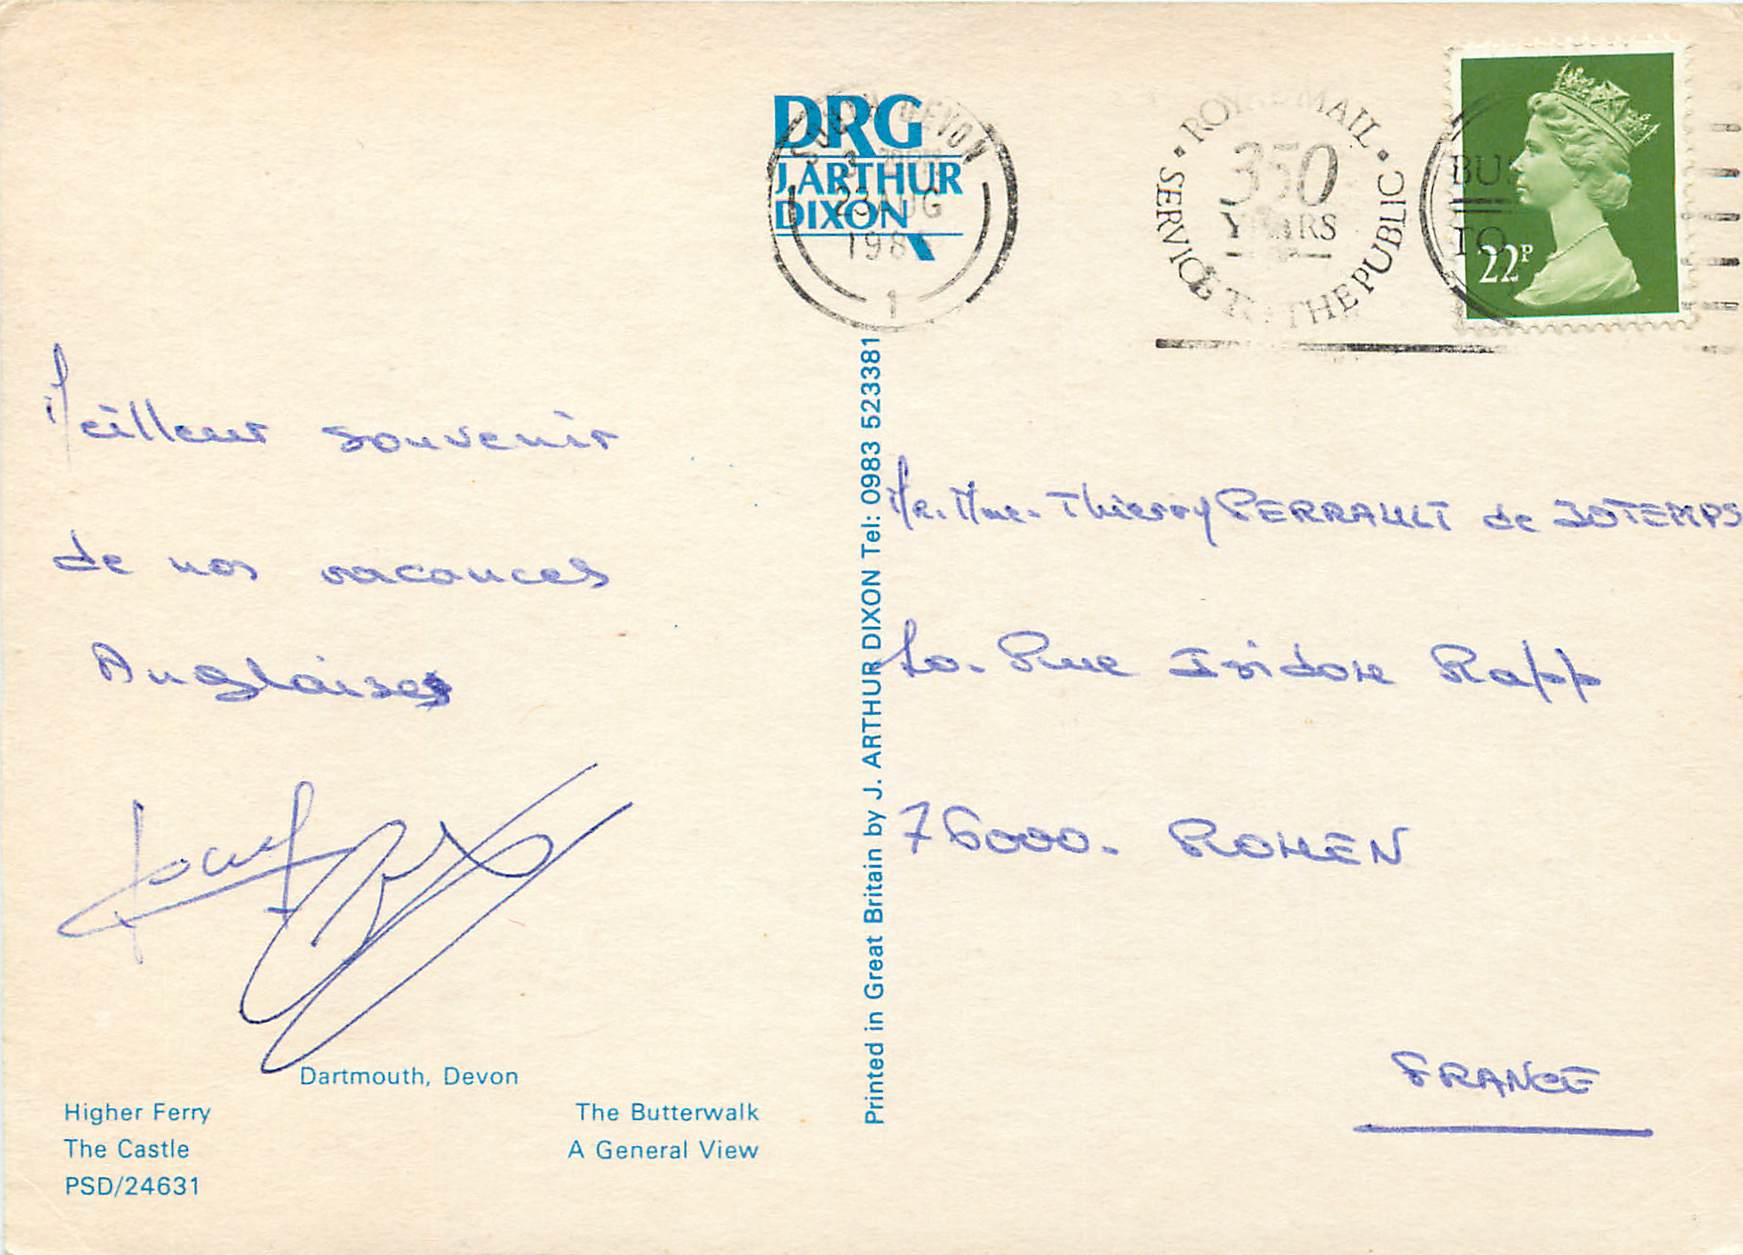 Meilleur souvenir
de nos vacances
Anglaises
Dartmouth, Devon
Higher Ferry
The Castle
PSD/24631
The Butterwalk
A General View
DRG
J. ARTHUR
DIXON
Printed in Great Britain by J. ARTHUR DIXON Tel: 0983 523381
DEVON
23 AUG
198
1
• ROYAL MAIL •
350
YEARS
SERVICE TO THE PUBLIC
BUS
TO
22P
Mr. Mme. Thierry PERRAULT de JOTEMPS
Rue Isidore Rapp
76000. ROUEN
FRANCE